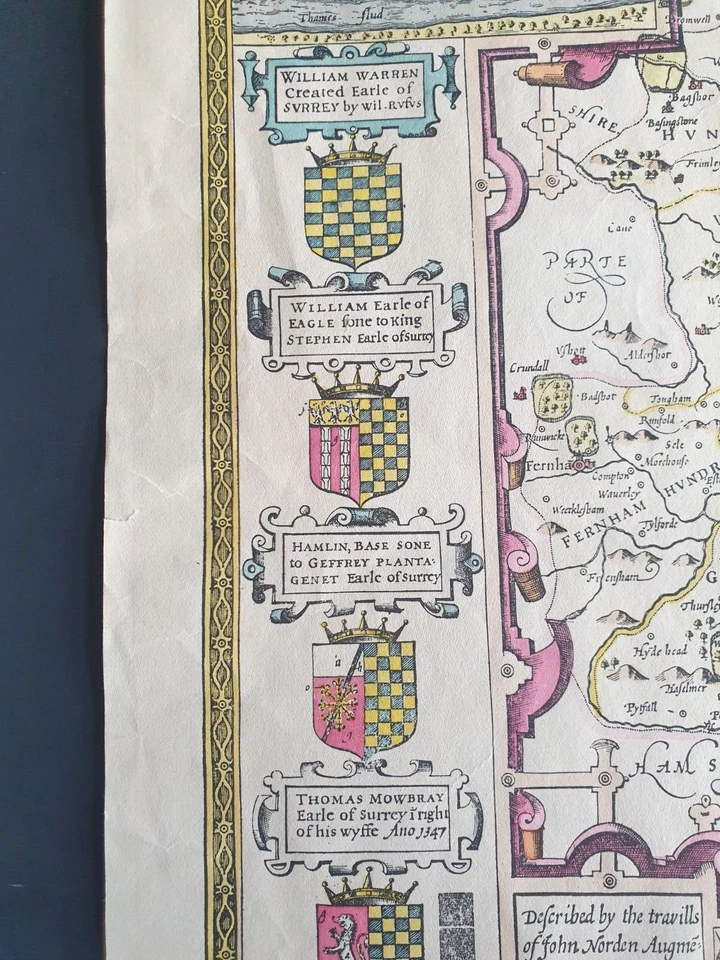 Thames flud
WILLIAM WARREN
Created Earle of
SVRREY by wil. Rvfvs
WILLIAM Earle of
EAGLE ſone to King
STEPHEN Earle of Surrey
HAMLIN, BASE SONE
to GEFFREY PLANTA:
GENET Earle of Surrey
THOMAS MOWBRAY
Earle of Surrey ĩ right
of his wyffe Ano 1347
Bromwell
Bagshot
SHIRE
Basingstone
HVN
Frimley
Caue
PARTE
OF
Aldershot
Crundall
Badshot
Tongham
Runfold
Sele
Fernha
Morehouse
Compton
Wauerley
HVNDR
Wereklesham
FERNHAM
Tylforde
Frensham
Thursley
Hyde head
Haselmer
Pytfall
HAM S
Deſcribed by the travills
of John Norden Augmẽ: